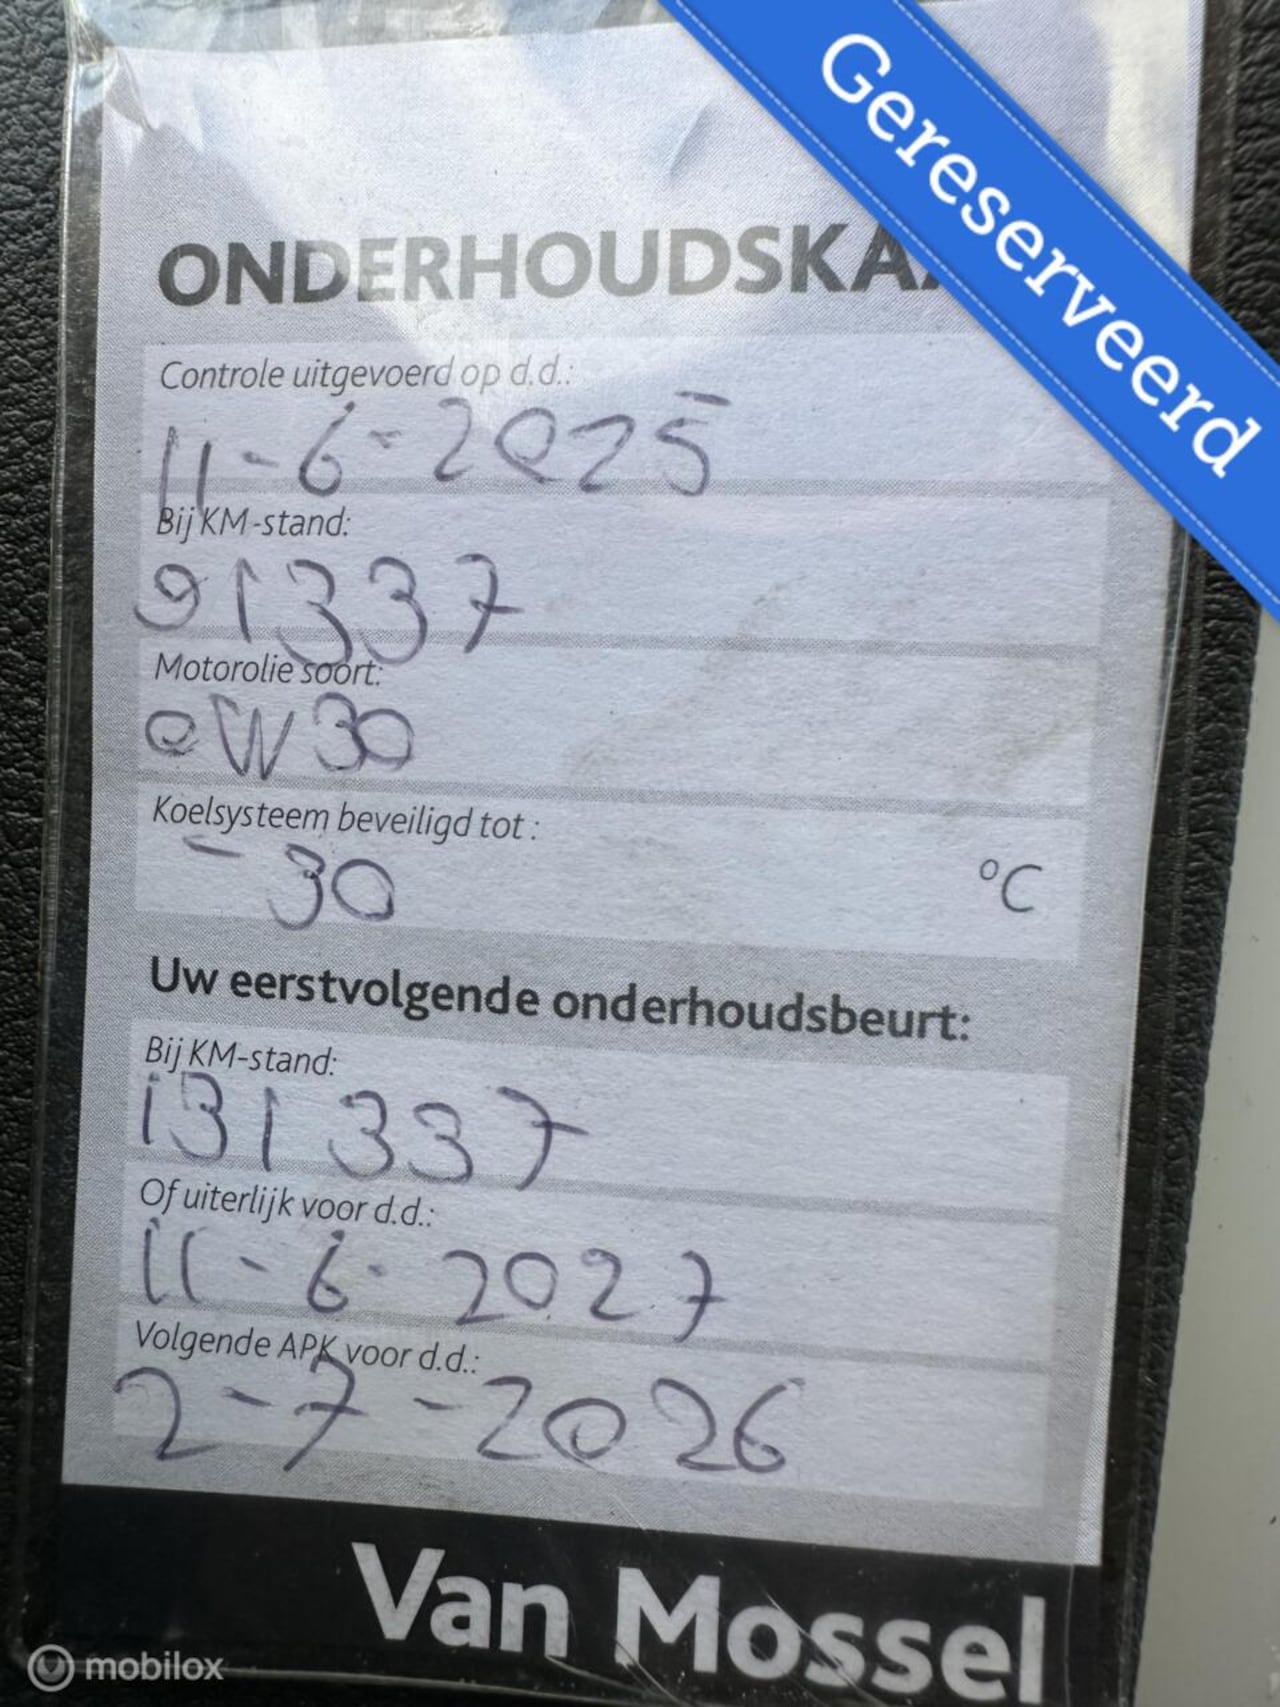 Gereserveerd
ONDERHOUDSKA
Controle uitgevoerd op d.d.:
11-6-2025
Bij KM-stand:
91337
Motorolie soort:
0W30
Koelsysteem beveiligd tot :
-30 °C
Uw eerstvolgende onderhoudsbeurt:
Bij KM-stand:
131337
Of uiterlijk voor d.d.:
11-6-2027
Volgende APK voor d.d.:
2-7-2026
Van Mossel
mobilox